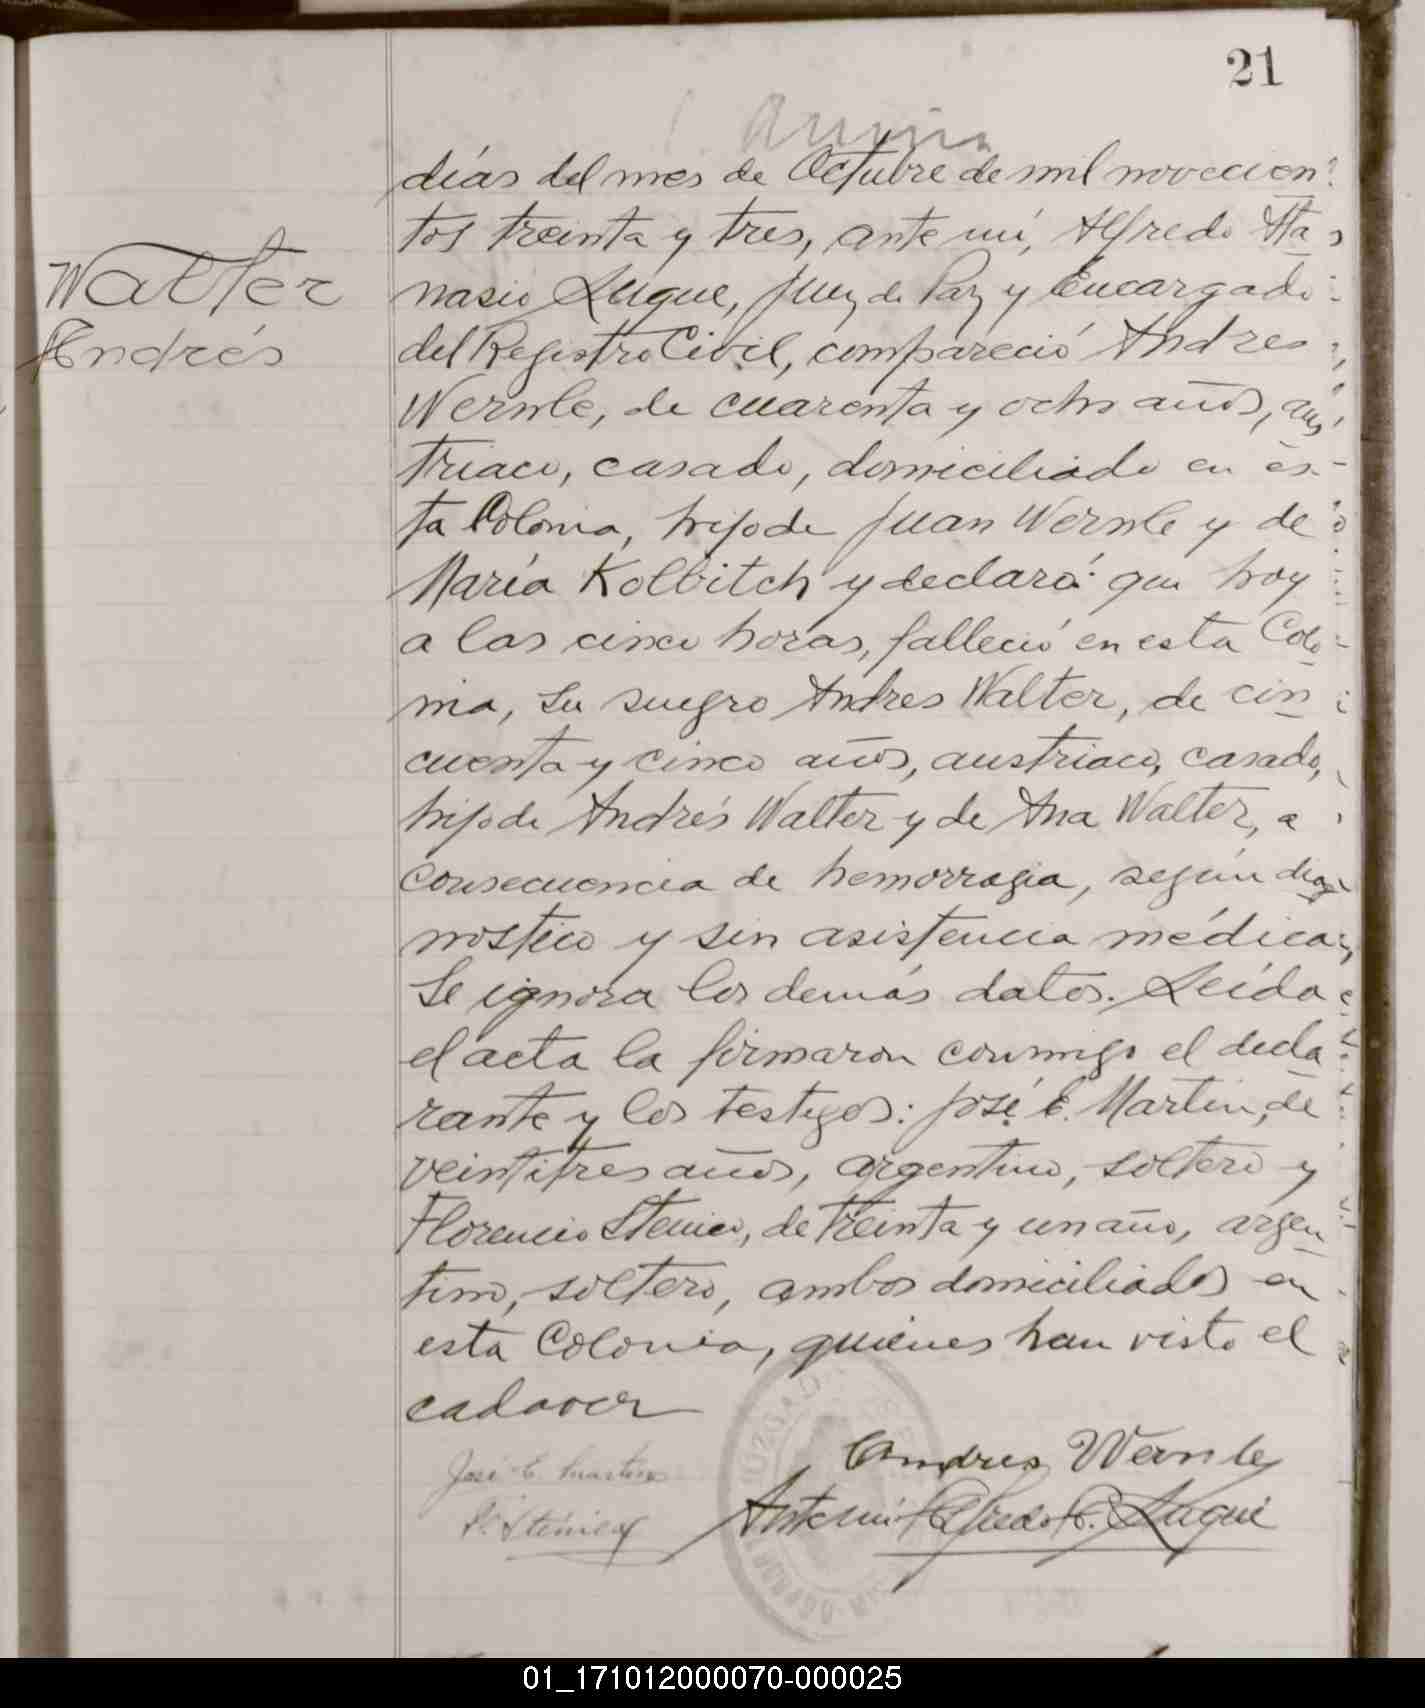 21
días del mes de Octubre de mil novecien
tos treinta y tres, ante mí, Alfredo Ata
nasio Luque, Juez de Paz y Encargado
del Registro Civil, compareció Andres
Wernle, de cuarenta y ocho años, aus
triaco, casado, domiciliado en es-
ta Colonia, hijo de Juan Wernle y de
María Kolbitch y declaró: que hoy
a las cinco horas, falleció en esta Colo
nia, su suegro Andres Walter, de cin
cuenta y cinco años, austriaco, casado,
hijo de Andrés Walter y de Ana Walter, a
consecuencia de hemorragia, según diag
nostico y sin asistencia médica,
Se ignora los demás datos. Leída
el acta la firmaron conmigo el decla
rante y los testigos: José E. Martin, de
veintitres años, argentino, soltero y
Florencio Stenico, de treinta y un año, argen
tino, soltero, ambos domiciliados en
esta Colonia, quienes han visto el
cadaver
Walter
Andrés
Andres Wernle
José E. Martin
Ante mí Alfredo A. Luque
F. Stenico
JUZGADO
01_171012000070-000025